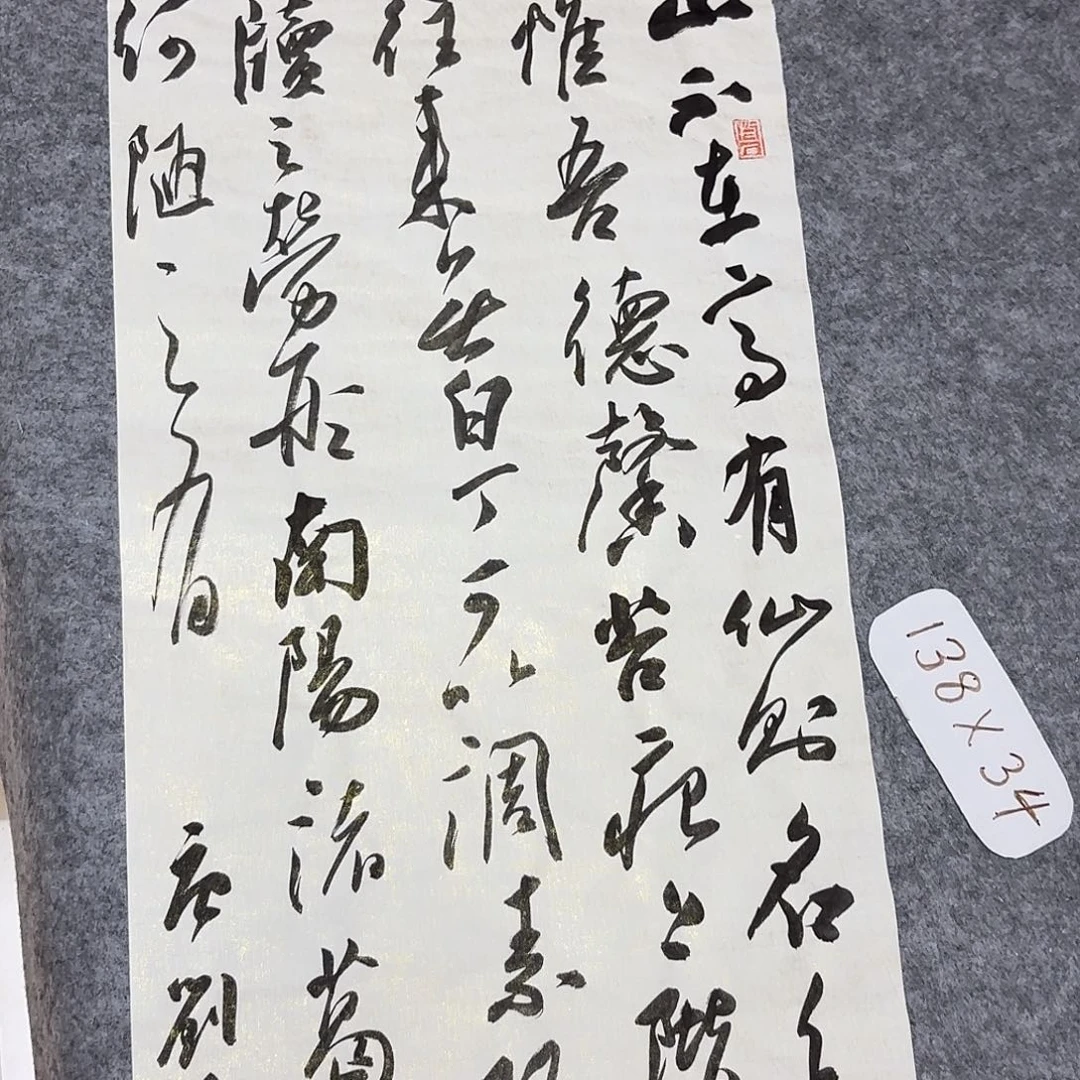 山不在高有仙則名
惟吾德馨苔痕上階
往來無白丁可以調素
牘之勞形南陽諸葛
何陋之有 唐劉
138X34